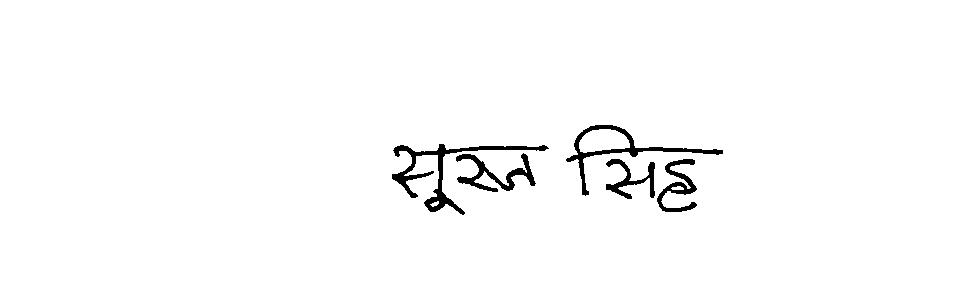 सूरज सिह